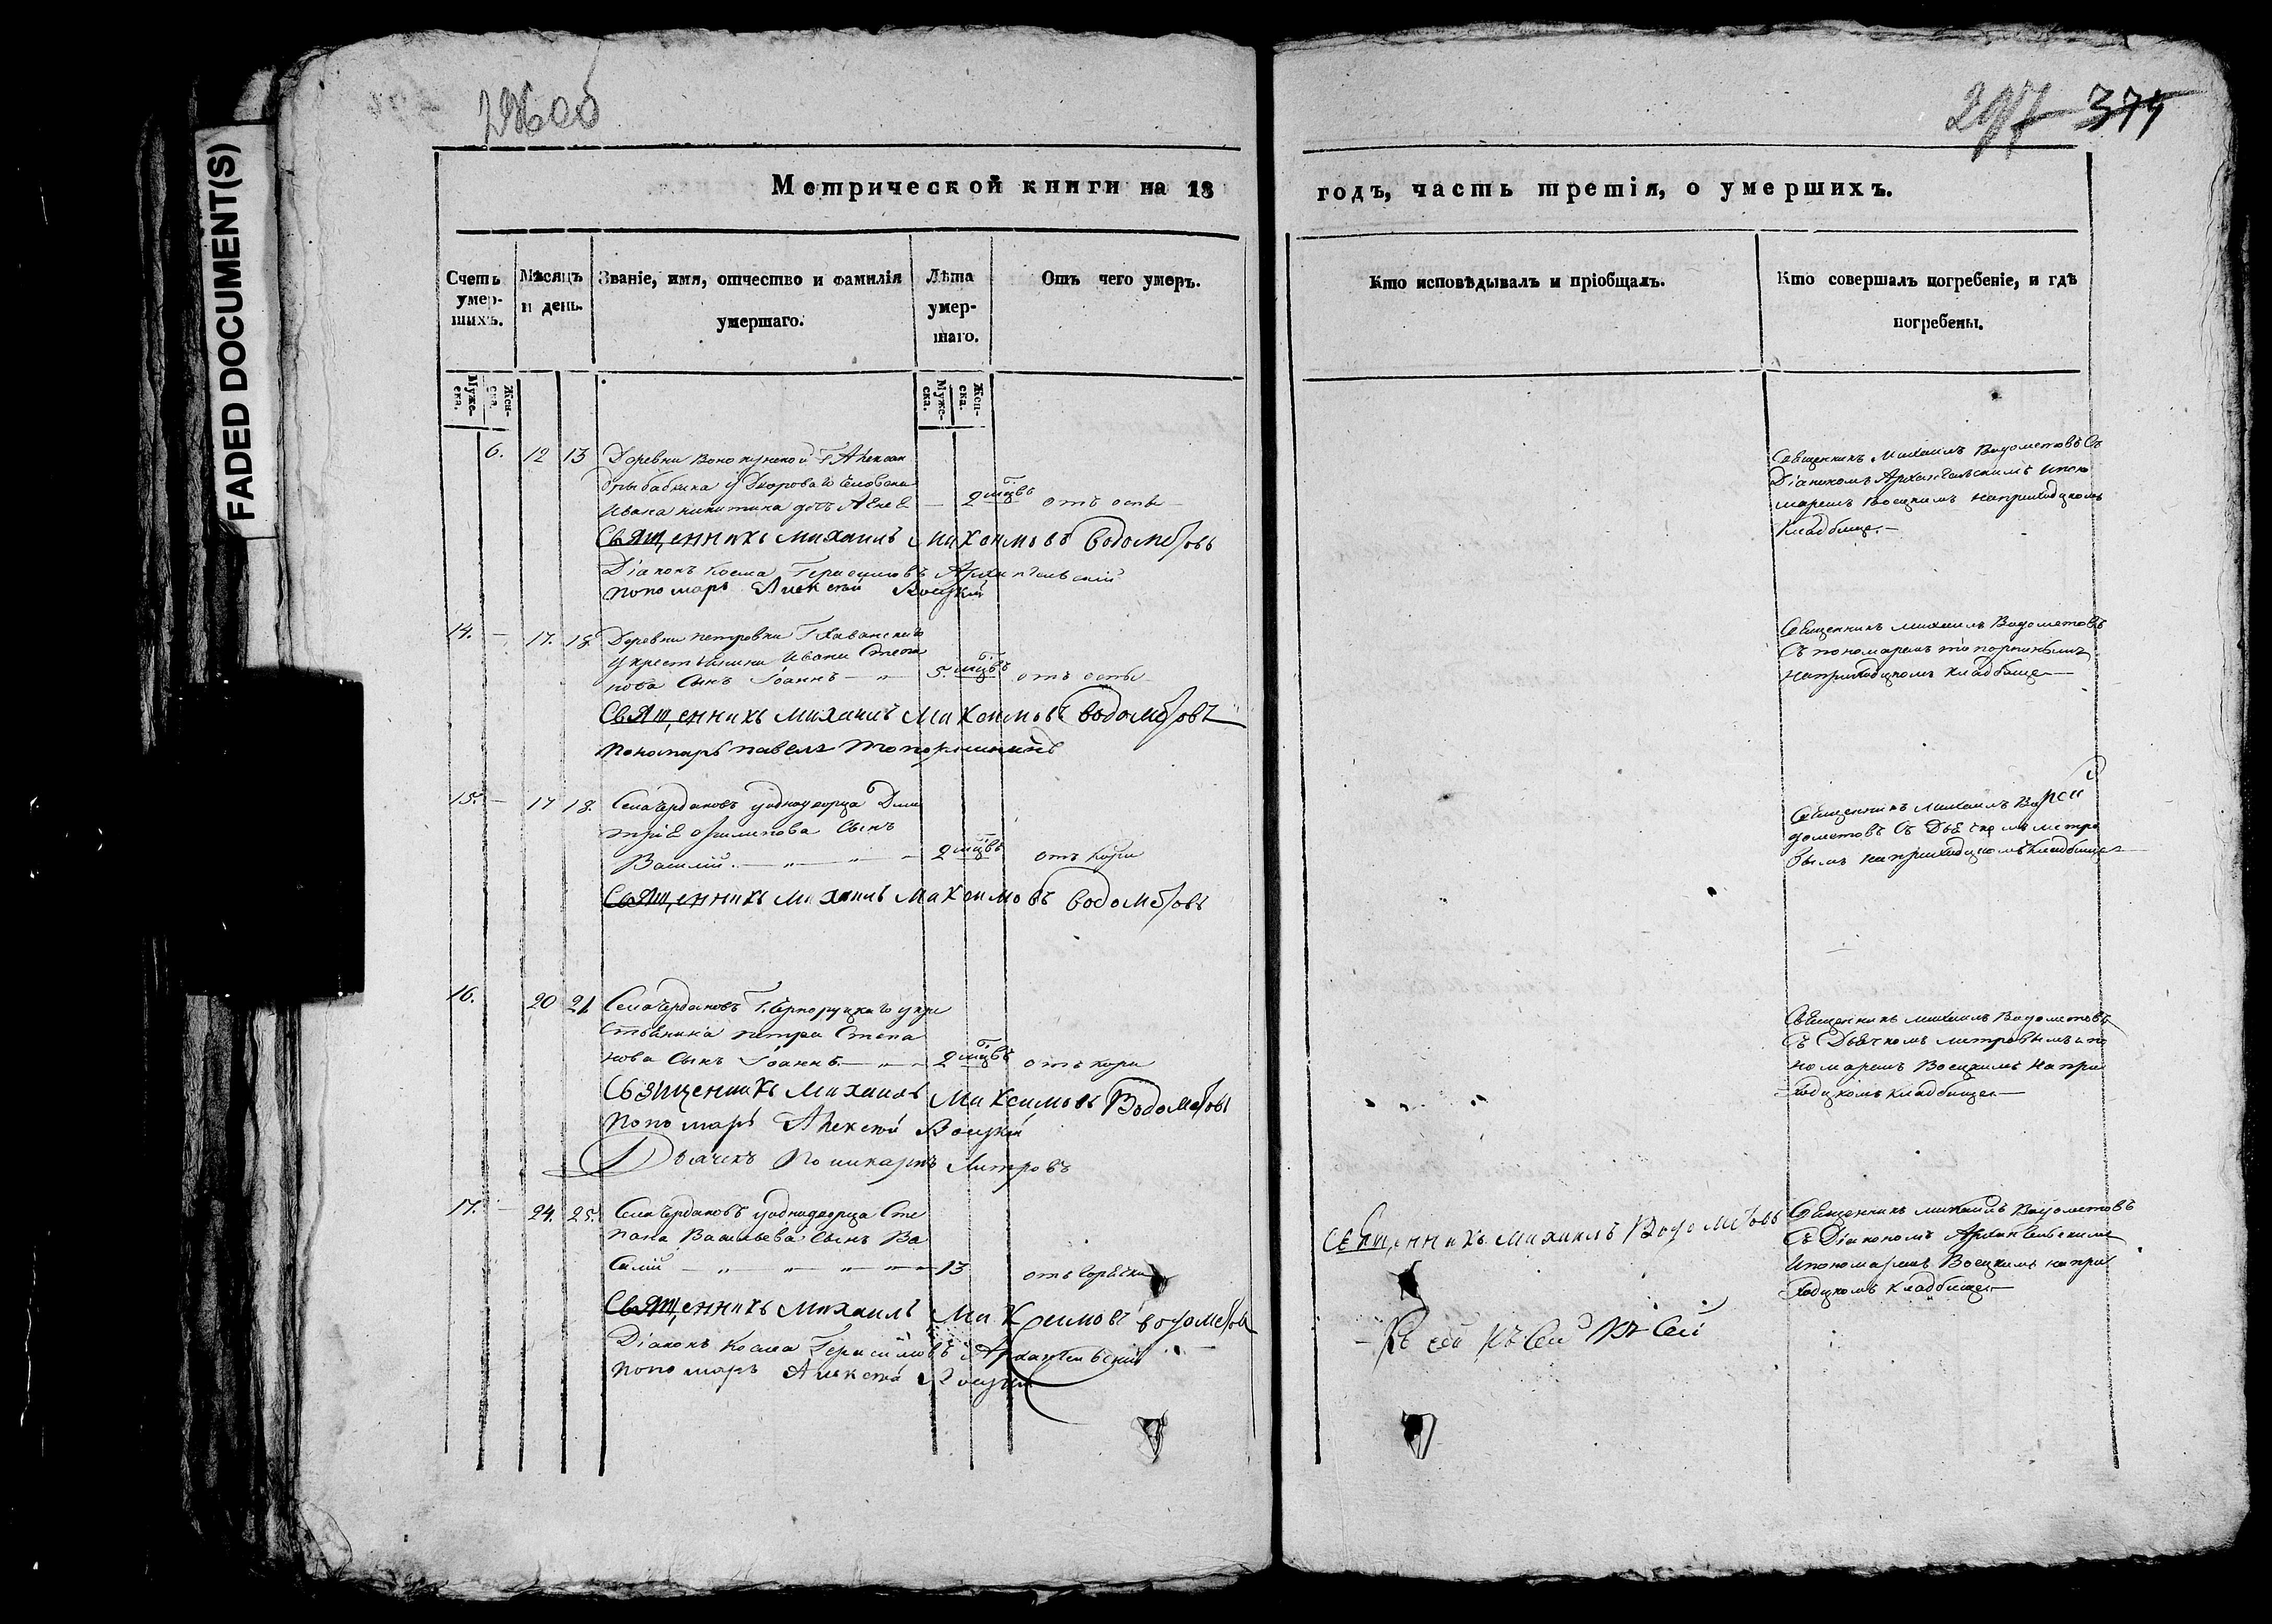 FADED DOCUMENT(S)
374
Метрической книги на 18
годъ, часть третія, о умершихъ.
Счетъ умер-шихъ.
Мѣсяцъ и день.
Званіе, имя, отчество и фамилія умершаго.
Лѣта умер-шаго.
Отъ чего умеръ.
Кто исповѣдывалъ и пріобщалъ.
Кто совершалъ погребеніе, и гдѣ погребены.
Муже-ска.
Жен-ска.
Муже-ска.
Жен-ска.
6. 12 13 Деревни Г Алексан
дры бабкина у Дворова го человека
Ивана никитина дочь 2 мцвъ отъ оспы
Священникъ Михаилъ Максимовъ Водометовъ
Діаконъ Косма Герасимовъ Архангельскій
пономарь Алексѣй Воецкій
Священникъ Михаилъ Водометовъ Съ
Діакономъ Архангельскимъ ипоно
маремъ Воецкимъ наприходцкомъ
Кладбище
14. 17. 18 Деревни петровки Г Хаванскаго
укрестьянина Ивана Степа
нова Сынъ Іоаннъ 5. мцвъ отъ оспы
Священникъ Михаилъ Максимовъ Водометовъ
Пономарь павелъ
Священникъ михаилъ Водометовъ
Съ пономаремъ
наприходцкомъ кладбище
15. 17 18. Села Чердаковъ уоднодворца Дми
трія Сынъ
Василій 2 мцвъ отъ кори
Священникъ Михаилъ Максимовъ Водометовъ
Священникъ Михаилъ Во
дометовъ Съ Дьячкомъ митро
вымъ наприходцкомъ кладбище
16. 20 21 Села Чердаковъ Г. Чернорудкаго укре
стьянина петра Степа
нова Сынъ Іоаннъ 2 мцвъ отъ кори
Священникъ Михаилъ Максимовъ Водометовъ
Пономарь Алексѣй Воецкій
Дьячекъ Поликарпъ Митровъ
Священникъ михаилъ Водометовъ
Съ Дьячкомъ митровымъ ипо
номаремъ Воецкимъ напри
ходцкомъ кладбище
17. 24. 25. Села Чердаковъ уоднодворца Сте
пана Васильева Сынъ Ва
Силій 13 отъ горячки
Священникъ Михаилъ Максимовъ Водометовъ
Діаконъ Косма Герасимовъ Архангельскій
пономарь Алексѣй Воецкій
Священникъ Михаилъ Водометовъ
Къ сей Къ Сей Къ Сей
Священникъ михаилъ Водометовъ
Съ Діакономъ Архангельскимъ
Ипономаремъ Воецкимъ напри
ходцкомъ кладбище